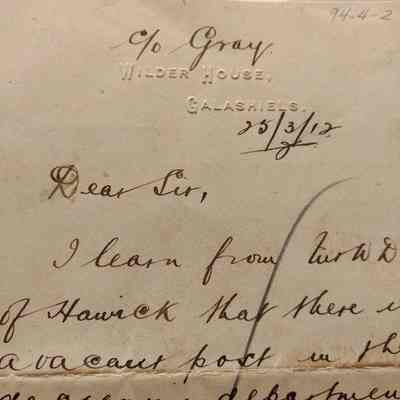 94-4-2
c/o Gray.
WILDER HOUSE,
GALASHIELS.
25/3/12
Dear Sir,
I learn from
of Hawick that there
a vacant post in the
designing departmen